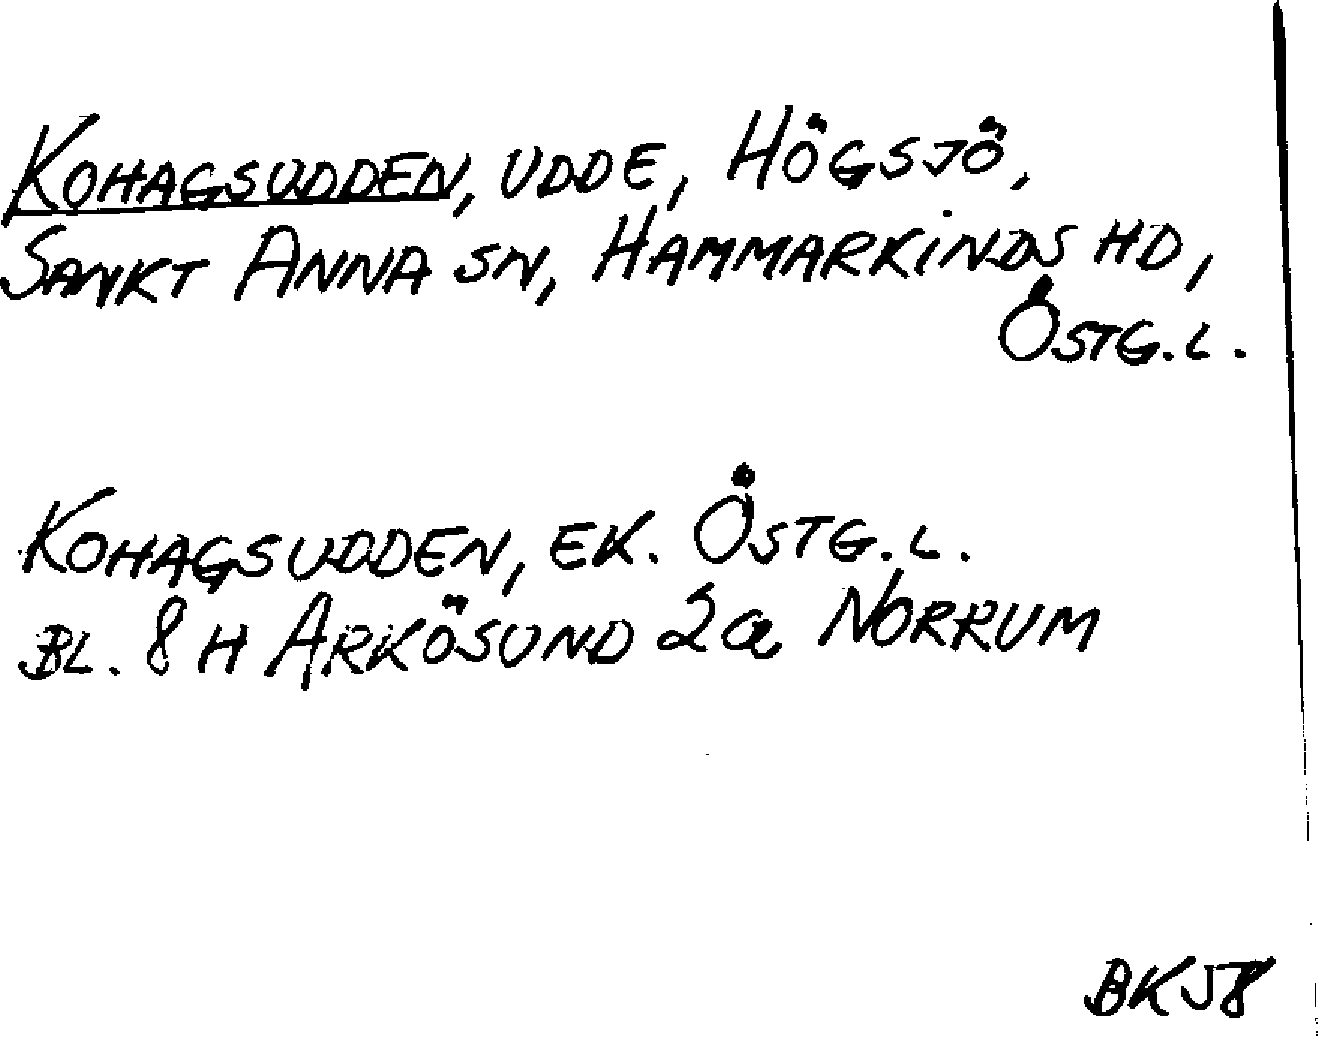 KOHAGSUDDEN, UDDE, HÖGSJÖ,
SANKT ANNA SN, HAMMARKINDS HD,
ÖSTG.L.
KOHAGSUDDEN, EK. ÖSTG.L.
BL. 8 H ARKÖSUND 2a NORRUM